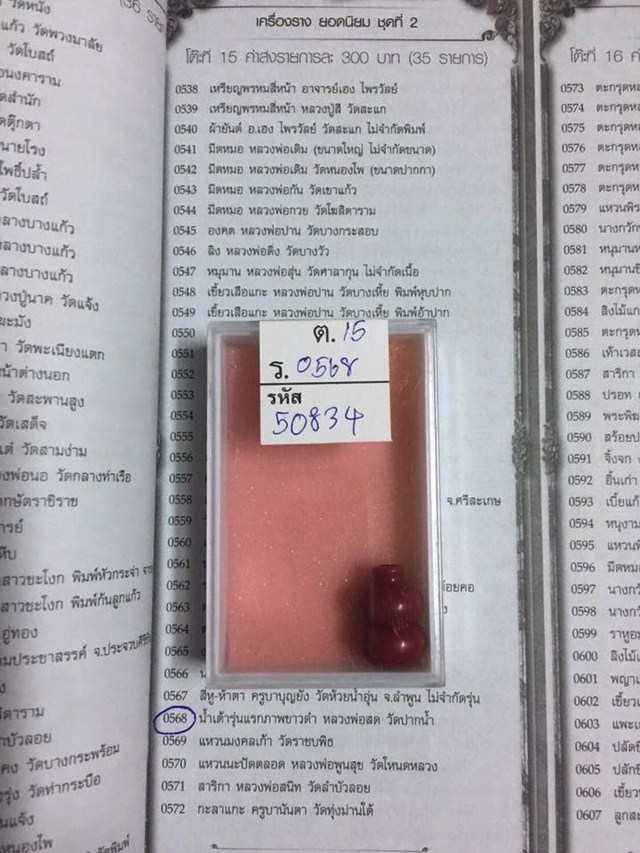 (36 ราย
วัดหนัง
แก้ว วัดพวงมาลัย
วัดโบสถ์
นงคาราม
ดสำนัก
ดตุ๊กตา
นายโรง
โพธิ์ปล้ำ
วัดโบสถ์
ลางบางแก้ว
ลางบางแก้ว
ลางบางแก้ว
วงปู่นาค วัดแจ้ง
ยะมัง
า วัดพะเนียงแตก
น้าต่างนอก
วัดสะพานสูง
วัดเสด็จ
เต๋ วัดสามง่าม
งพ่อนอ วัดกลางท่าเรือ
กษัตราธิราช
ารย์
หีบ
สาวชะโงก พิมพ์หัวกระจ่า จาก
สาวชะโงก พิมพ์กันลูกแก้ว
อู่ทอง
มประชาสรรค์ จ.ประจวบคีรี
ง
สีดาราม
ำบัวลอย
คง วัดบางกระพร้อม
รุ่ง วัดท่ากระบือ
นแจ้ง
หนองโพ
เครื่องราง ยอดนิยม ชุดที่ 2
โต๊ะที่ 15 ค่าส่งรายการละ 300 บาท (35 รายการ)
0538 เหรียญพรหมสี่หน้า อาจารย์เฮง ไพรวัลย์
0539 เหรียญพรหมสี่หน้า หลวงปู่สี วัดสะแก
0540 ผ้ายันต์ อ.เฮง ไพรวัลย์ วัดสะแก ไม่จำกัดพิมพ์
0541 มีดหมอ หลวงพ่อเดิม (ขนาดใหญ่ ไม่จำกัดขนาด)
0542 มีดหมอ หลวงพ่อเดิม วัดหนองโพ (ขนาดปากกา)
0543 มีดหมอ หลวงพ่อกัน วัดเขาแก้ว
0544 มีดหมอ หลวงพ่อกวย วัดโฆสิตาราม
0545 องคต หลวงพ่อปาน วัดบางกระสอบ
0546 ลิง หลวงพ่อดิ่ง วัดบางวัว
0547 หนุมาน หลวงพ่อสุ่น วัดศาลากุน ไม่จำกัดเนื้อ
0548 เขี้ยวเสือแกะ หลวงพ่อปาน วัดบางเหี้ย พิมพ์หุบปาก
0549 เขี้ยวเสือแกะ หลวงพ่อปาน วัดบางเหี้ย พิมพ์อ้าปาก
0550
0551
0552
0553
0554
0555
0556
0557
0558 จ.ศรีสะเกษ
0559
0560
0561
0562 ร้อยคอ
0563
0564
0565
0566
0567 สีหู-ห้าตา ครูบาบุญยัง วัดห้วยน้ำอุ่น จ.ลำพูน ไม่จำกัดรุ่น
0568 น้ำเต้ารุ่นแรกภาพขาวดำ หลวงพ่อสด วัดปากน้ำ
0569 แหวนมงคลเก้า วัดราชบพิธ
0570 แหวนนะปัดตลอด หลวงพ่อพูนสุข วัดโหนดหลวง
0571 สาริกา หลวงพ่อสนิท วัดลำบัวลอย
0572 กะลาแกะ ครูบานันตา วัดทุ่งม่านใต้
ต. 15
ร. 0568
รหัส
50834
โต๊ะที่ 16 ค่
0573 ตะกรุดหล
0574 ตะกรุดหล
0575 ตะกรุดหล
0576 ตะกรุดหล
0577 ตะกรุดหล
0578 ตะกรุดหล
0579 แหวนพิร
0580 นางกวัก
0581 หนุมานห
0582 หนุมานข
0583 หนุมาน
0584 สิงไม้แก
0585 ตะกรุด
0586 เท้าเวส
0587 สาริกา
0588 ปรอท
0589 พระพิม
0590 สร้อยป
0591 จิ้งจก
0592 อิ้นเก่า
0593 เบี้ยแก้
0594 หนุงาน
0595 แหวนพิ
0596 มีดหมอ
0597 นางกวั
0598 นางกวั
0599 ราหูอม
0600 ลิงไม้แ
0601 พญาเ
0602 เขี้ยว
0603 แพะเ
0604 ปลัดขิ
0605 ปลัก
0606 เขี้ยว
0607 ลูกสะ